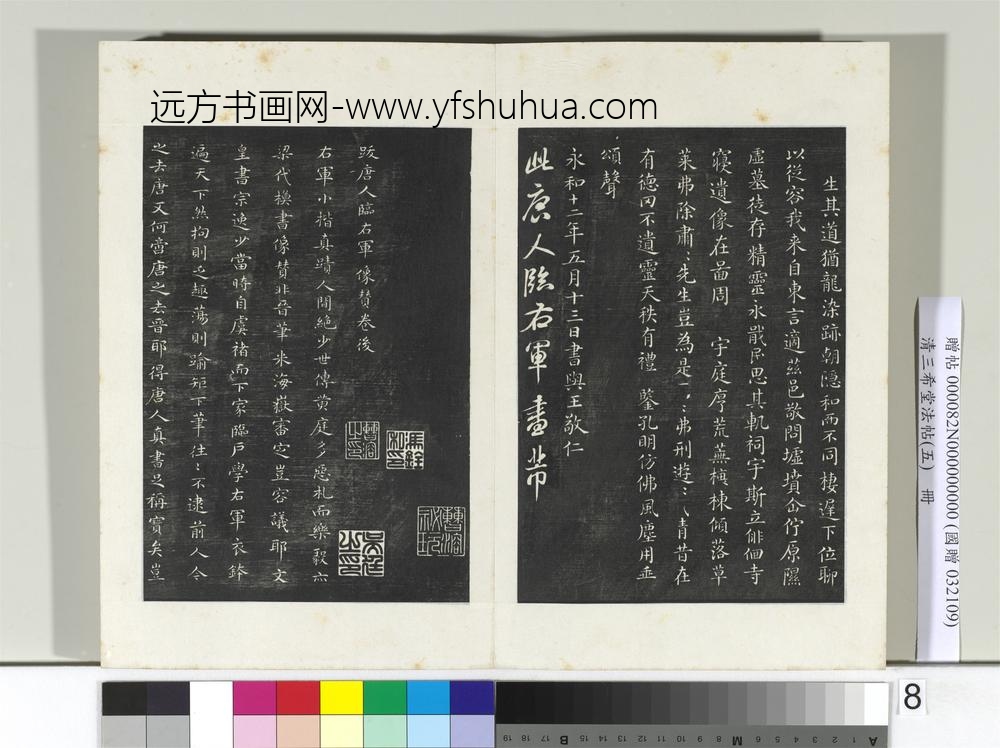 远方书画网-www.yfshuhua.com
生其道猶龍染跡朝隱和而不同棲遲下位聊
以從容我来自東言適兹邑敬問墟墳企佇原隰
虛墓徒存精靈永戢民思其軌祠宇斯立俳佪寺
寝遺像在啚周 宇庭序荒蕪榱棟傾落草
莱弗除肅〻先生豈為是〻〻弗刑遊〻〻月昔在
有德罔不遺靈天秩有禮 鑒孔明仿佛風塵用垂
頌聲
永和十二年五月十三日書與王敬仁
此唐人臨右軍畫
跋唐人臨右軍像賛卷後
右軍小楷真蹟人間絶少世傳黄庭多惡札而樂毅亦
梁代模書像賛非晋筆米海嶽審定豈容議耶文
皇書宗逸少當時自虞褚而下家臨戶學右軍衣鉢
遍天下然拘則乏趣蕩則踰矩下筆往〻不逮前人今
之去唐又何啻唐之去晋耶得唐人真書足稱寳矣豈
贈帖 000082N000000000 (國贈 032109)
清三希堂法帖(五) 冊
8